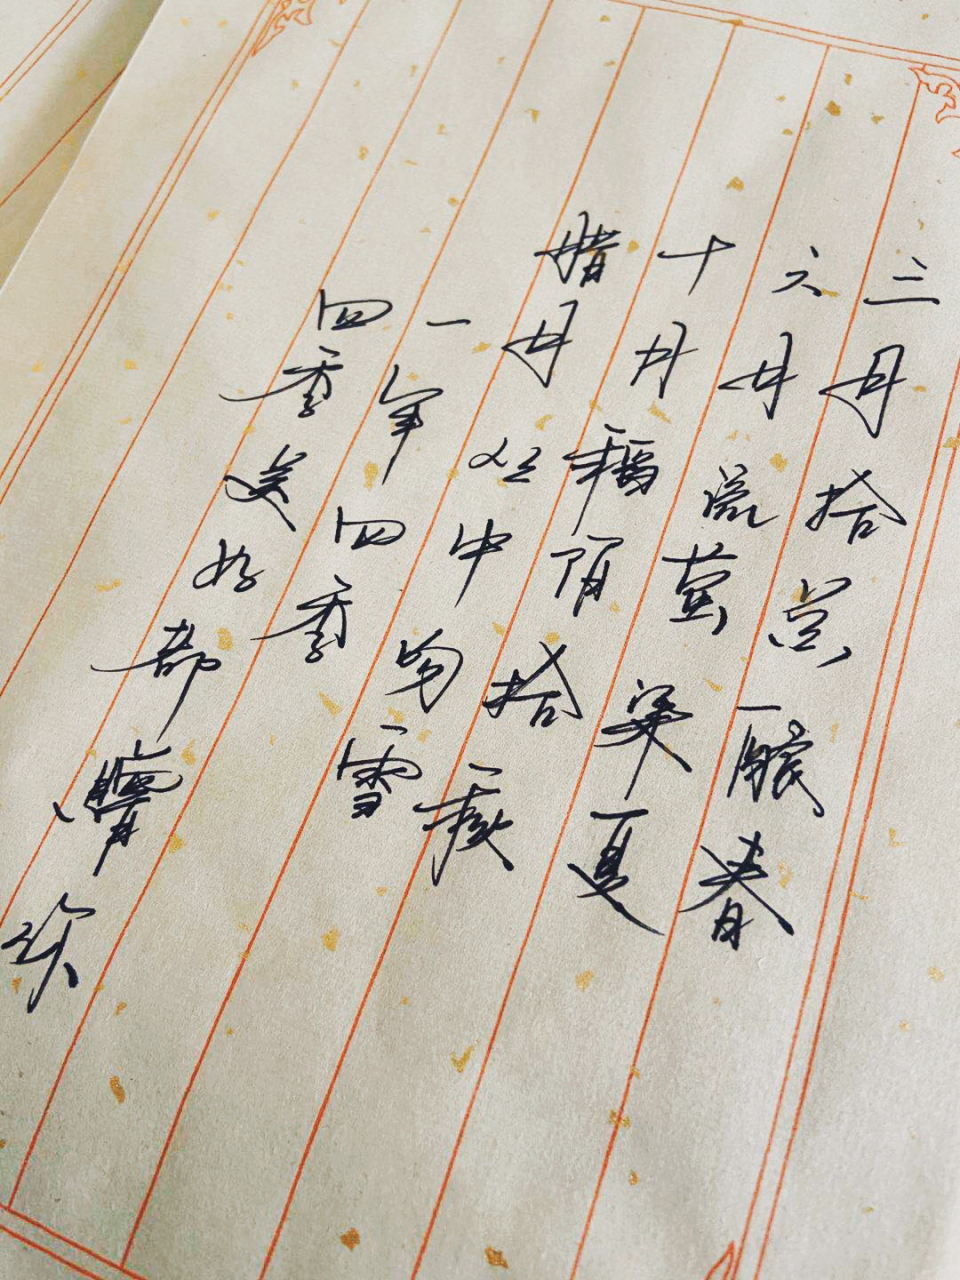 三月拾花酿春
六月流萤染夏
十月稻陌拾秋
腊月丛中吻雪
一年四季
四季美好都赠你